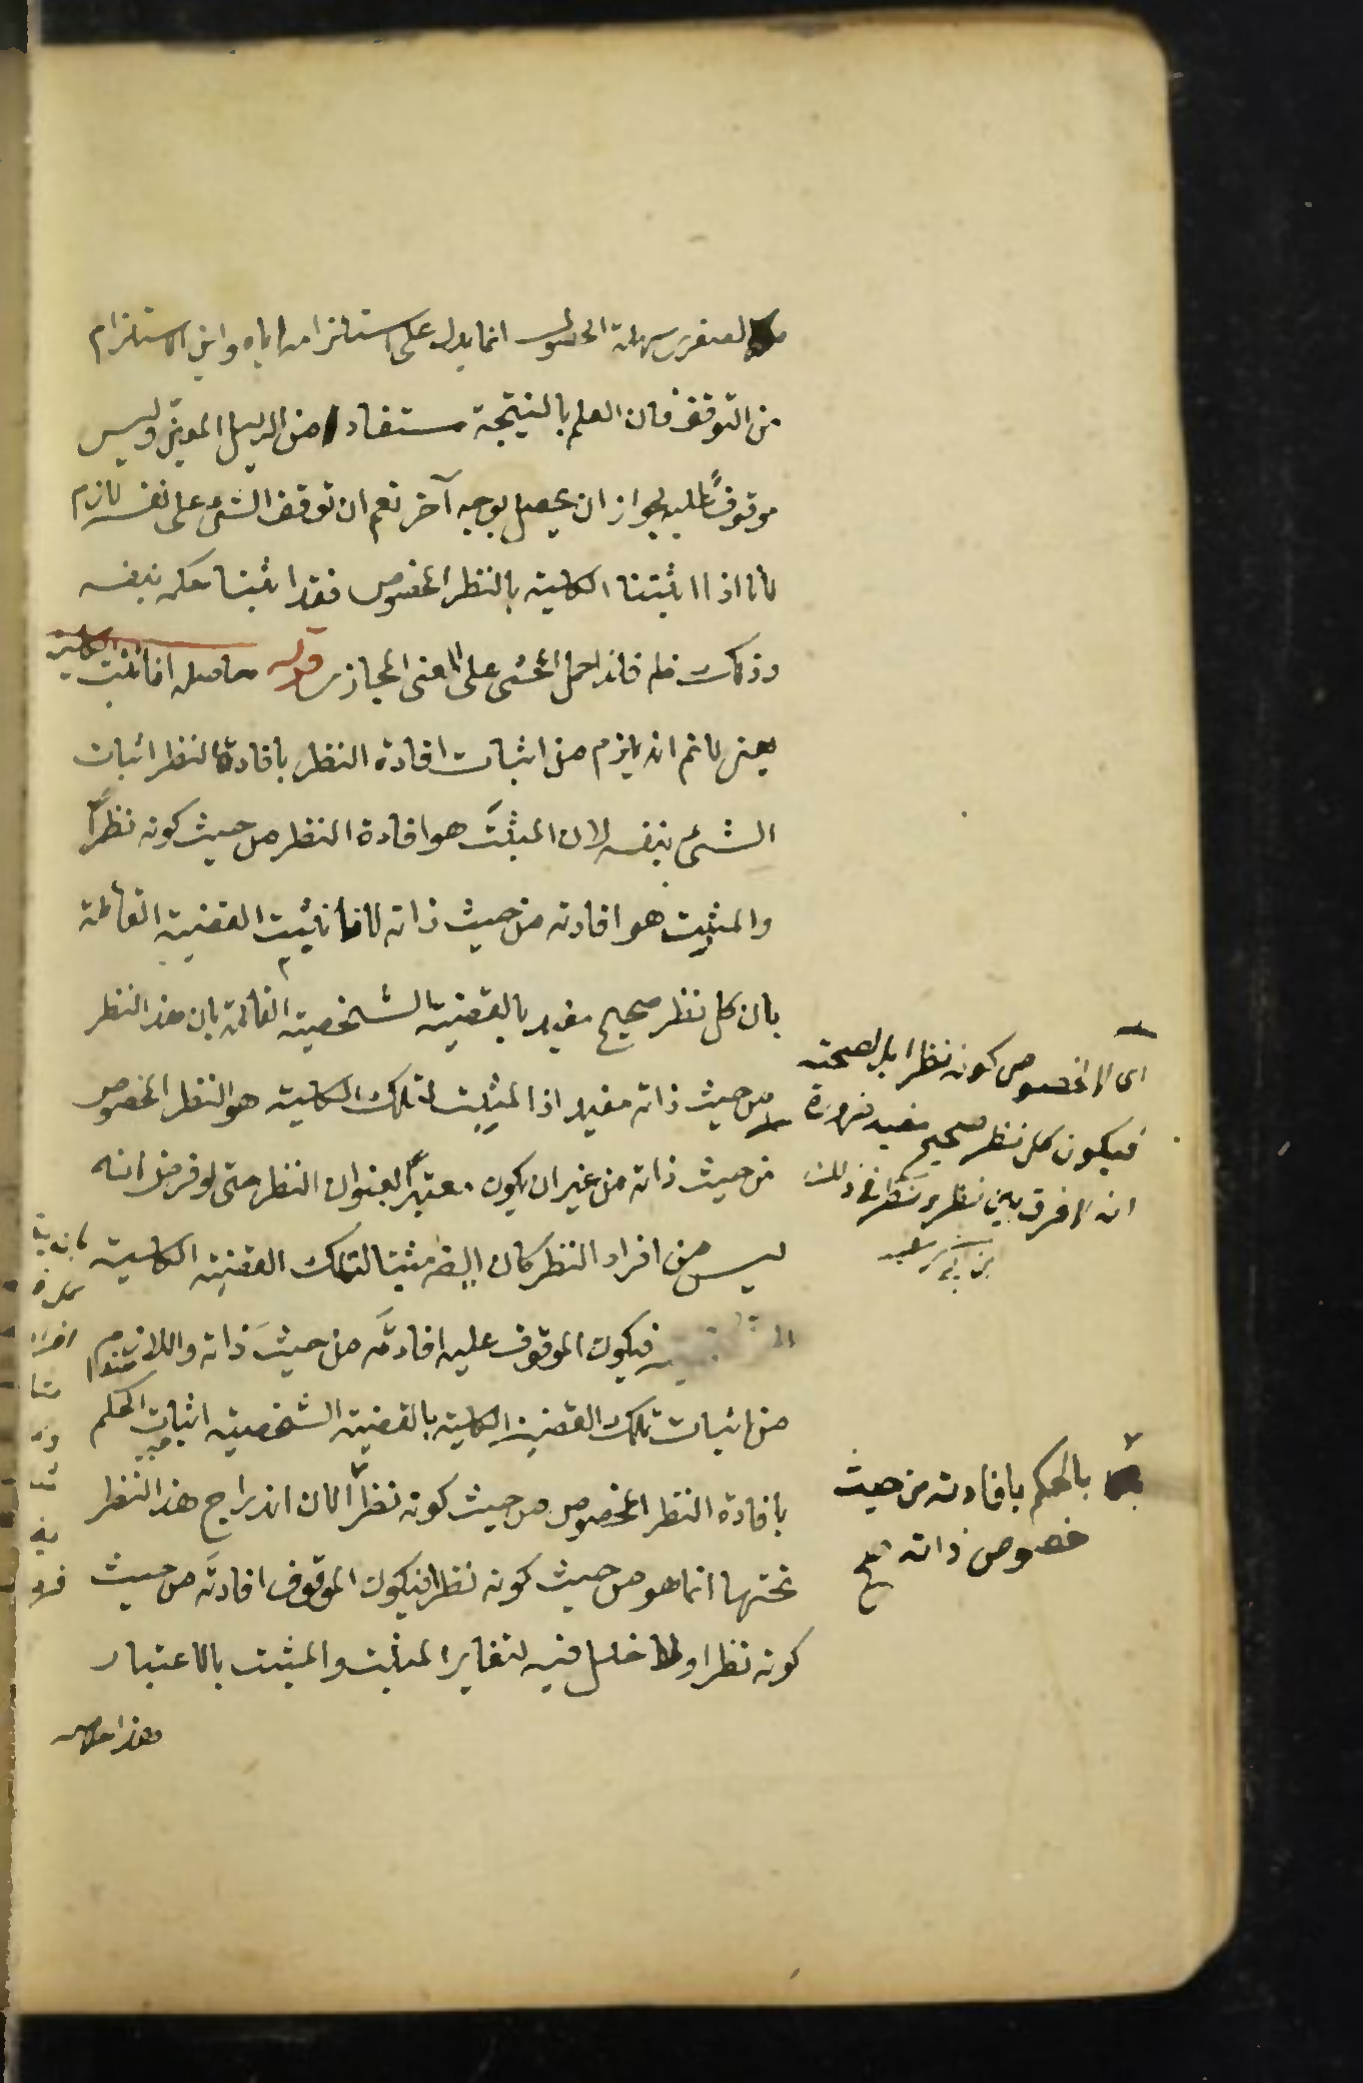 الصغرى سهلة الحصول انما يدل على استلزامها اياه واين الاستلزام
من التوقف فان العلم بالنتيجة مستفاد من الدليل المعين وليس
موقوفًا عليه لجواز ان يحصل بوجه آخر نعم ان توقف الشئ على نفسه لازم
لانا اذا اثبتنا الكلية بالنظر المخصوص فقد اثبتنا حكمه بنفسه
وذلك فلذا حمل المحشى على المعنى المجازى قوله حاصله انا نثبت الكلية
يعنى لانم انه يلزم من اثبات افادة النظر بافادة النظر اثبات
الشئ بنفسه لان المثبَت هو افادة النظر من حيث كونه نظرًا
والمثبِت هو افادته من حيث ذاته لانا نثبت القضية القائلة
بان كل نظر صحيح مفيد بالقضية الشخصية القائلة بان هذا النظر
من حيث ذاته مفيد اذ المثبت لتلك الكلية هو النظر المخصوص
من حيث ذاته من غير ان يكون معتبرًا بعنوان النظر حتى لو فرض انه
ليس من افراد النظر كان ايضا مثبتا لتلك القضية الكلية
فيكون الموقوف عليه افادتَه من حيثَ ذاته واللازم
من اثبات تلك القضية الكلية بالقضية الشخصية اثبات الحكم
بافادة النظر المخصوص من حيث كونه نظرًا لان اندراج هذا النظر
تحتها انما هو من حيث كونه نظرا فيكون الموقوف افادتَه من حيث
كونه نظرا ولا خلل فيه لتغاير المثبت والمثبت بالاعتبار
هذا
اى لا لخصوص كونه نظرا بل لصحته
فيكون كل نظر صحيح مفيد ضرورة
انه لا فرق بين نظر ونظر فى ذلك
بالحكم بافادته من حيث
خصوص ذاته صح